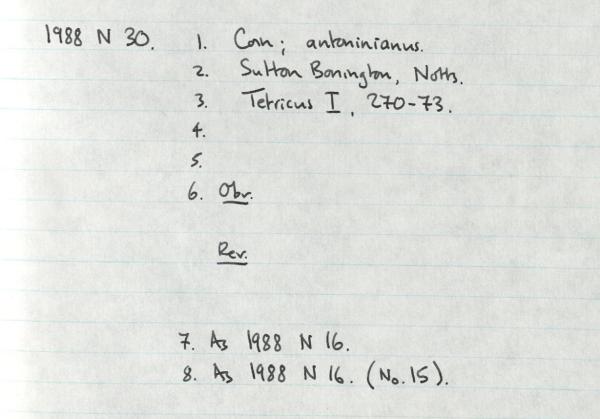 1988 N 30. 1. Coin; antoninianus.
2. Sutton Bonington, Notts.
3. Tetricus I, 270-73.
4.
5.
6. Obv.
Rev.
7. As 1988 N 16.
8. As 1988 N 16. (No. 15).